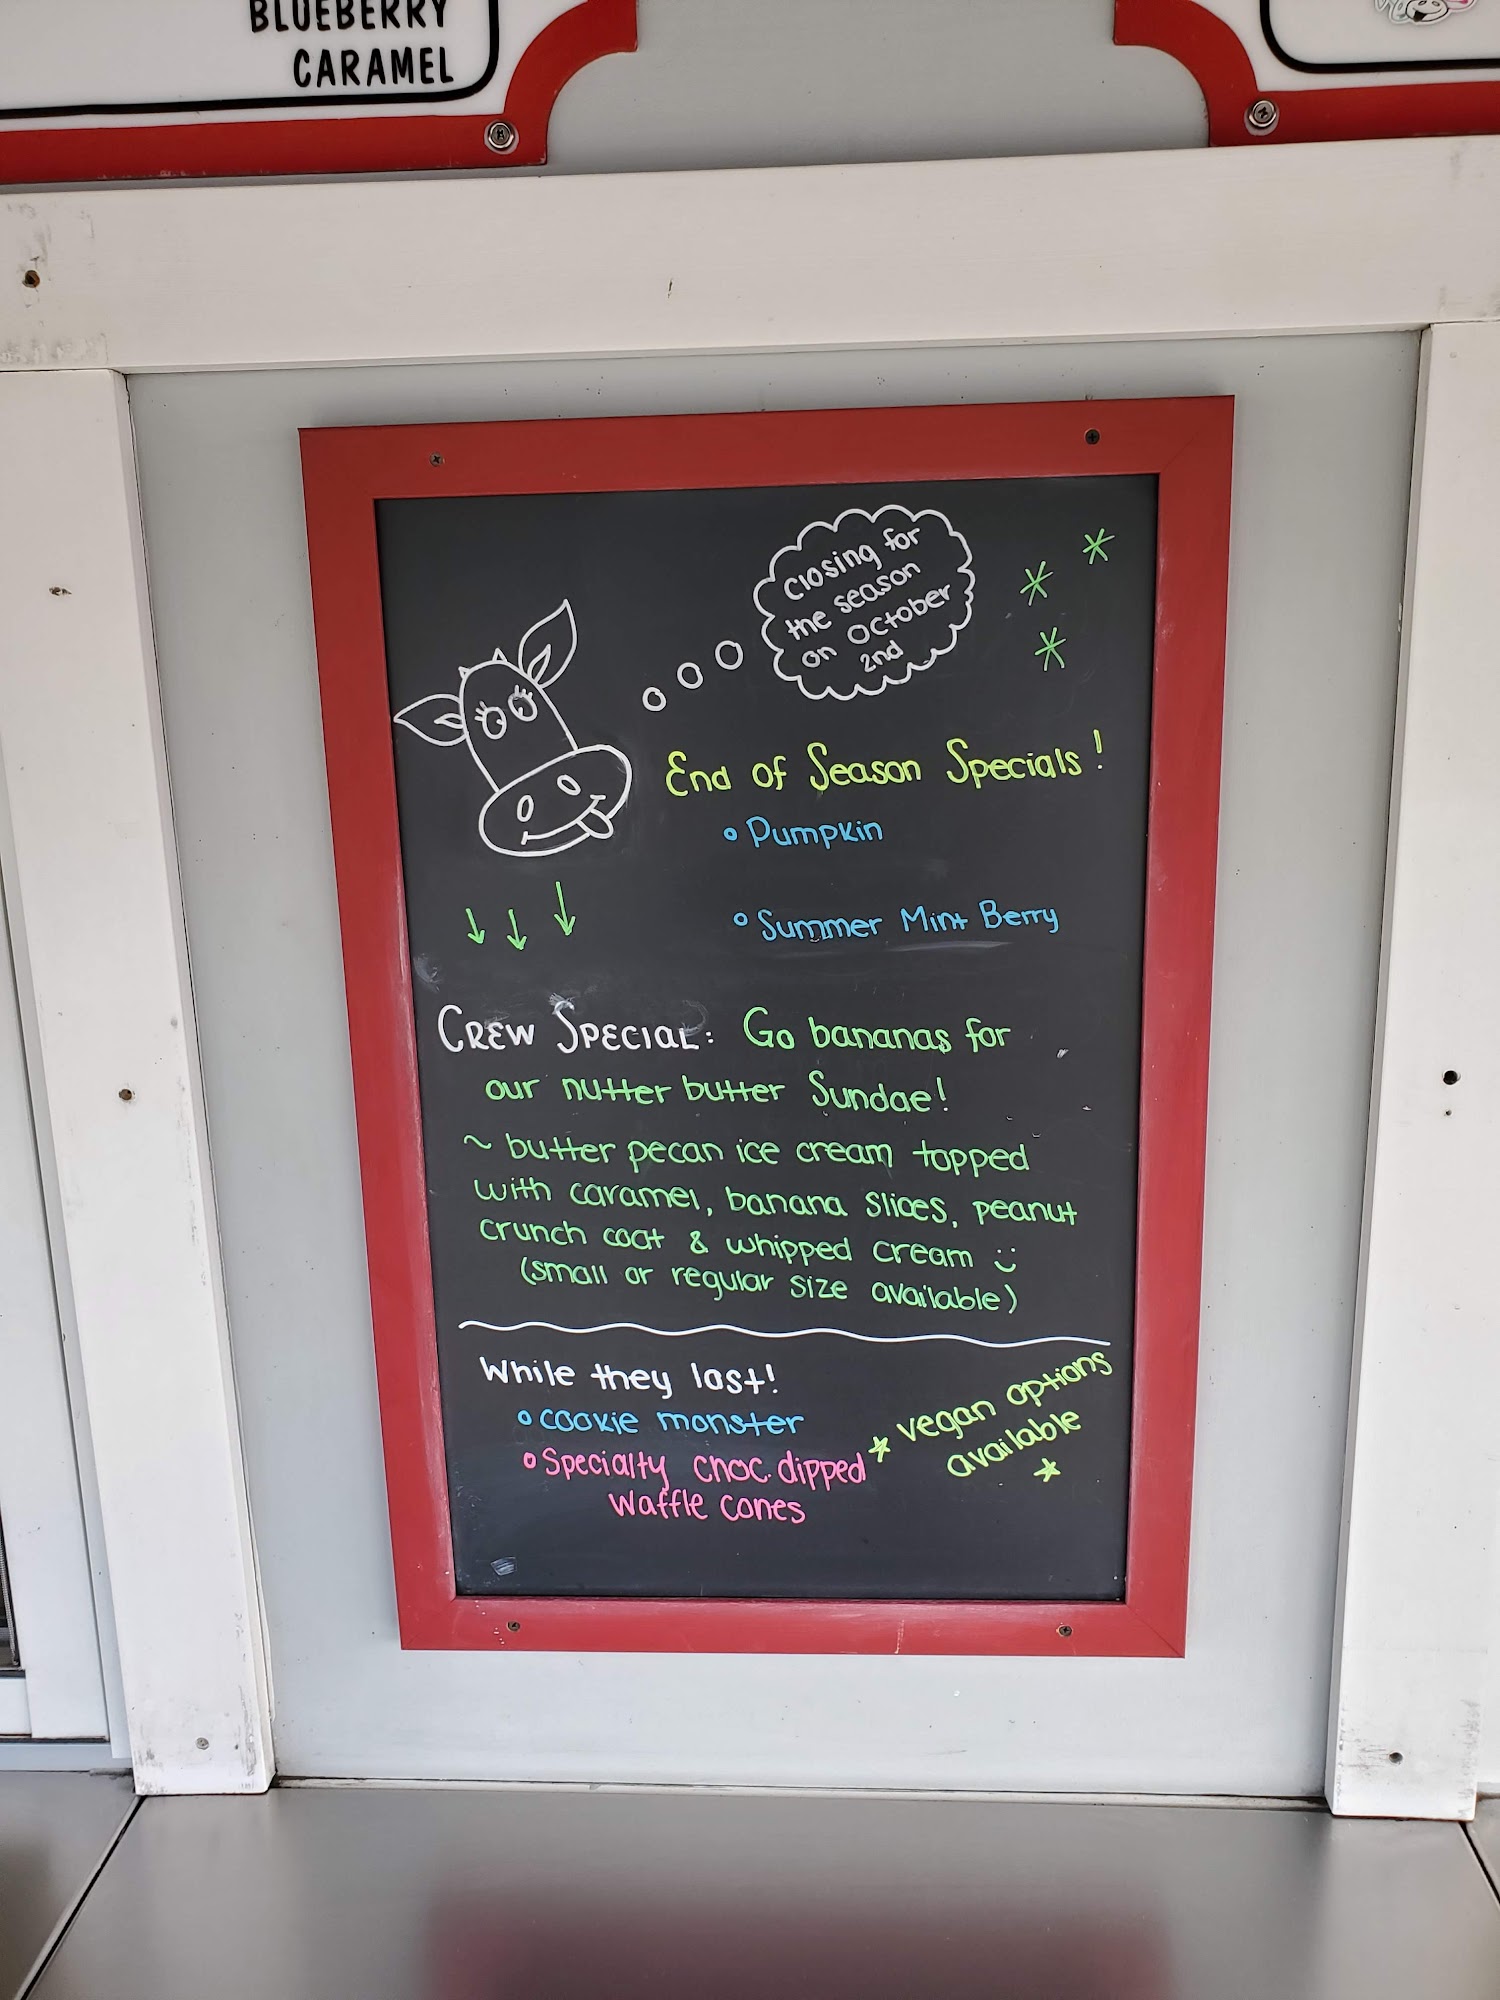 BLUEBERRY
CARAMEL
Closing for
the season
on October
2nd
End of Season Specials!
Pumpkin
Summer Mint Berry
CREW SPECIAL: Go bananas for
our nutter butter Sundae!
~ butter pecan ice cream topped
with caramel, banana slices, peanut
crunch coat & whipped cream :)
(small or regular size available)
While they last!
cookie monster
Specialty choc. dipped
waffle cones
* vegan options
available
*